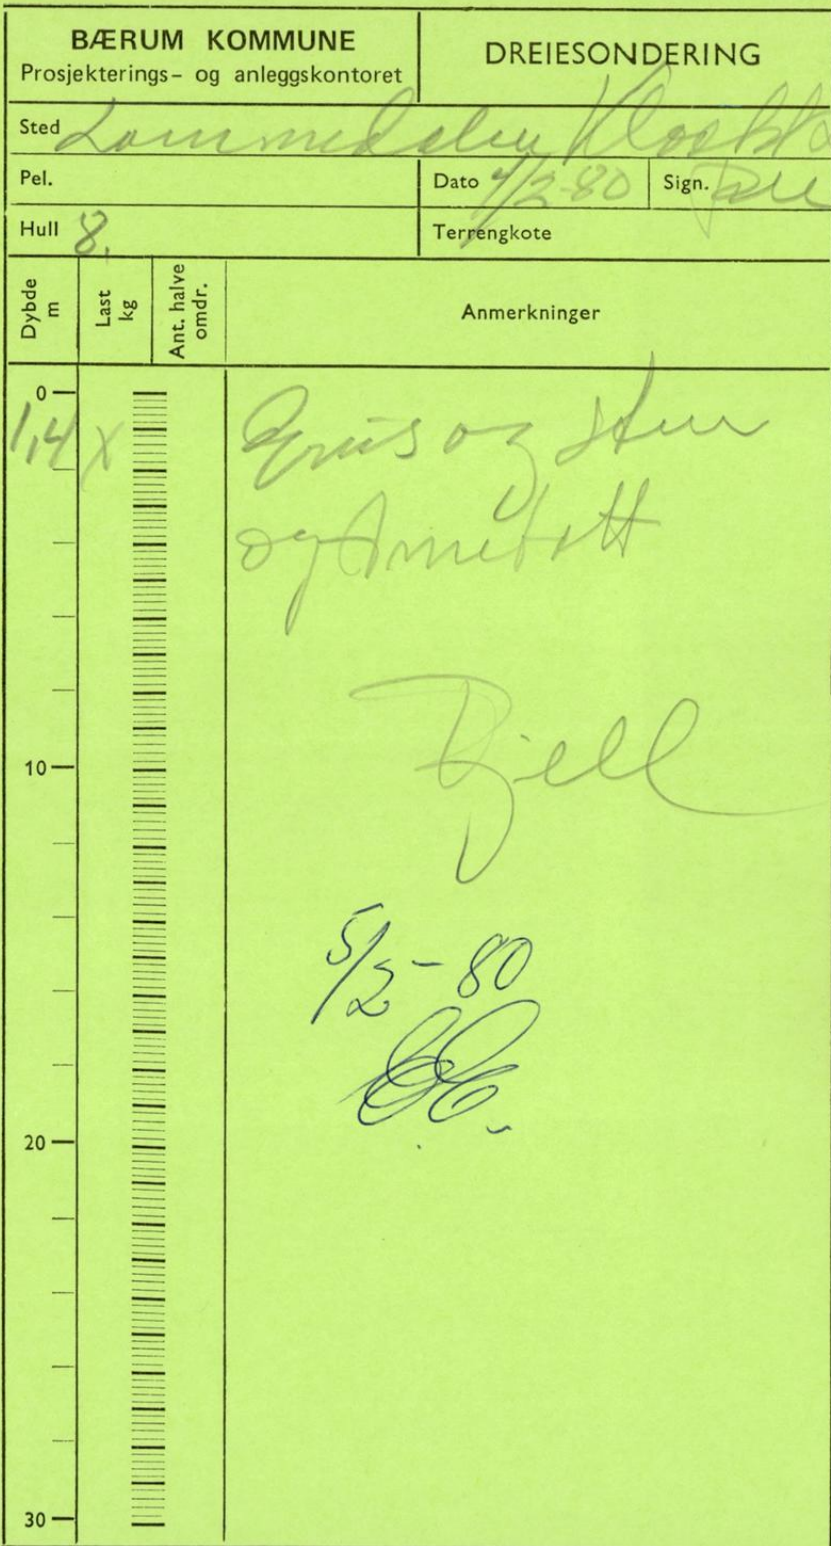 BÆRUM KOMMUNE
Prosjekterings- og anleggskontoret
DREIESONDERING
Sted Lommedalen
Pel.
Dato 4/2-80
Sign.
Hull 8.
Terrengkote
Dybde m
Last kg
Ant. halve omdr.
Anmerkninger
0
1,4 X
Grus og sten
og
Fjell
10
5/2-80
20
30